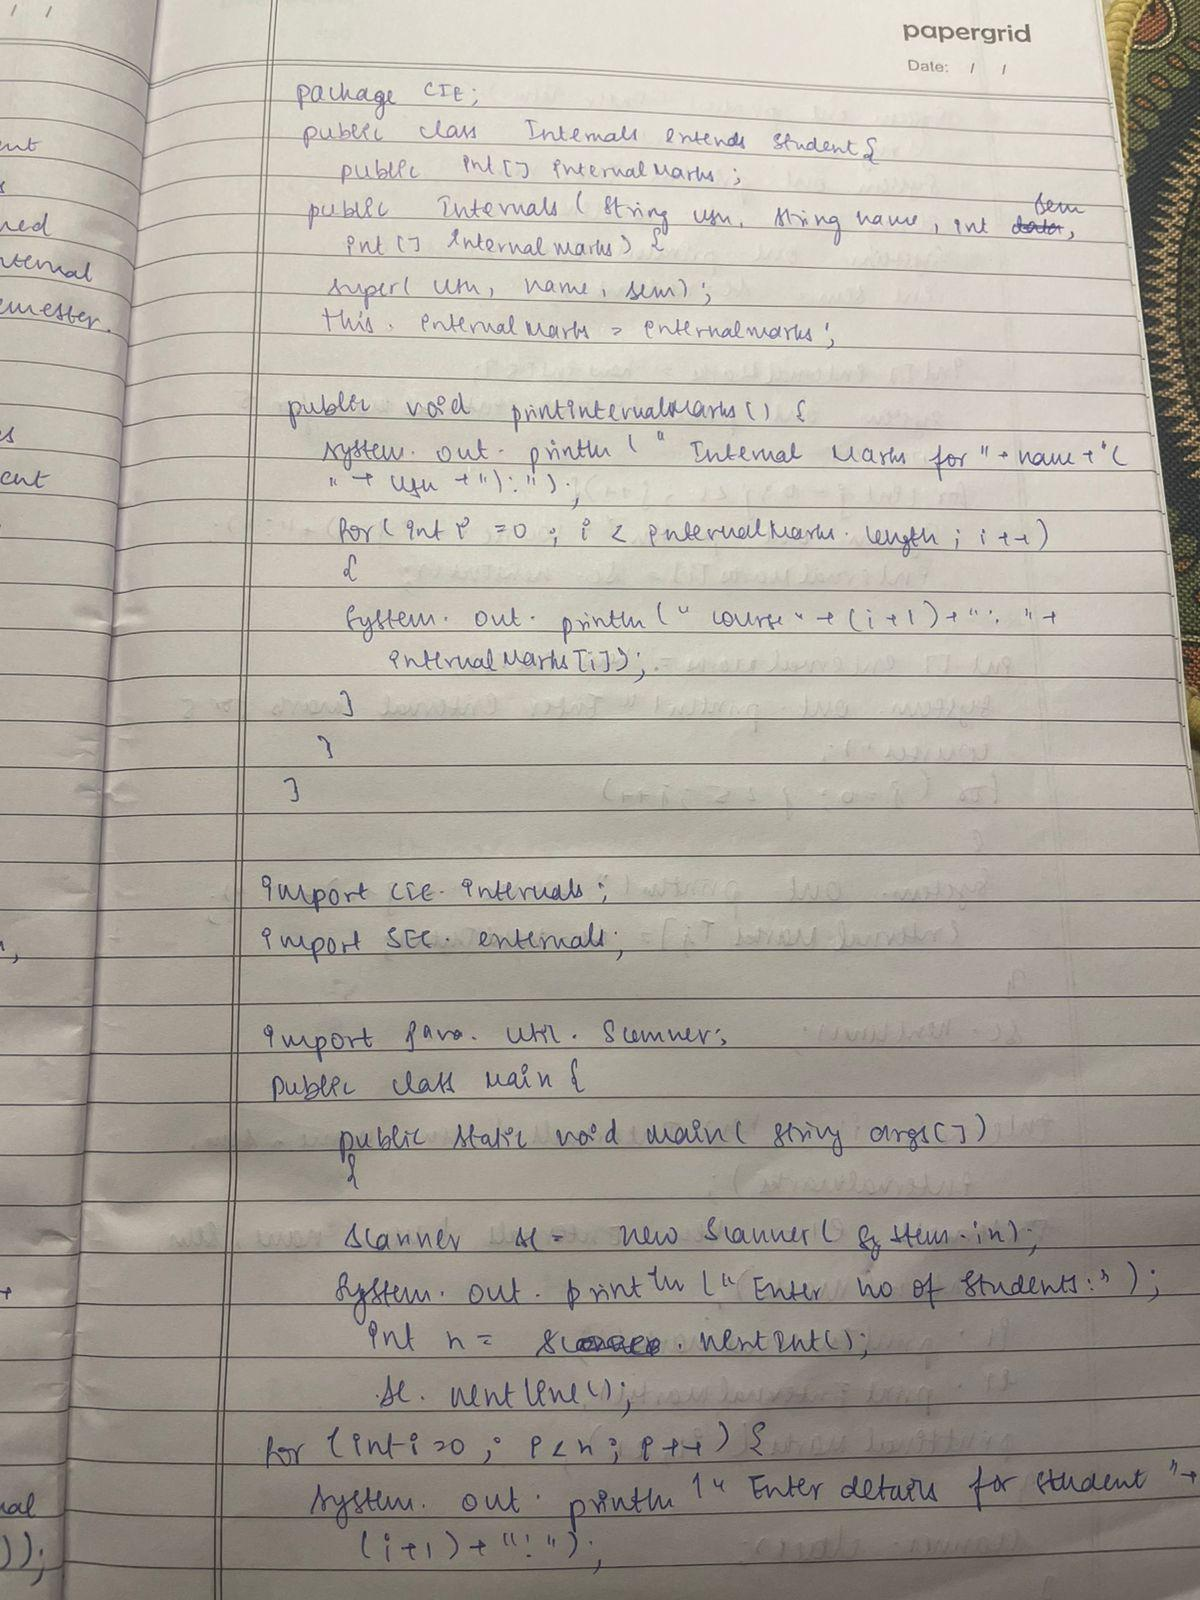 papergrid
Date: / /
package CIE;
public class Internals extends Student{
public int[] internalMarks;
public Internals( String usn, String name, int sem,
int[] internalmarks) {
super( usn, name, sem);
this. internalMarks = internalmarks;
public void printinternalMarks() {
System. out. println (" Internal Marks for "+ name +"(
" + usn +"):");
for( int i =0 ; i < internalMarks. length; i++)
{
System. out. println (" course "+ (i+1)+": "+
internalMarks[i]);
}
}
}
import CIE. internals;
import SEE. externals;
import java. util. Scanner;
public class Main {
public static void main( String args[])
{
Scanner sc = new Scanner( System.in);
System. out. println ("Enter no of students:");
int n = sc. nextInt();
sc. nextline();
for (int i=0 ; i<n ; i++) {
System. out. println (" Enter details for student "+
(i+1)+":");
ent
ned
nternal
emester.
ent
nal
));